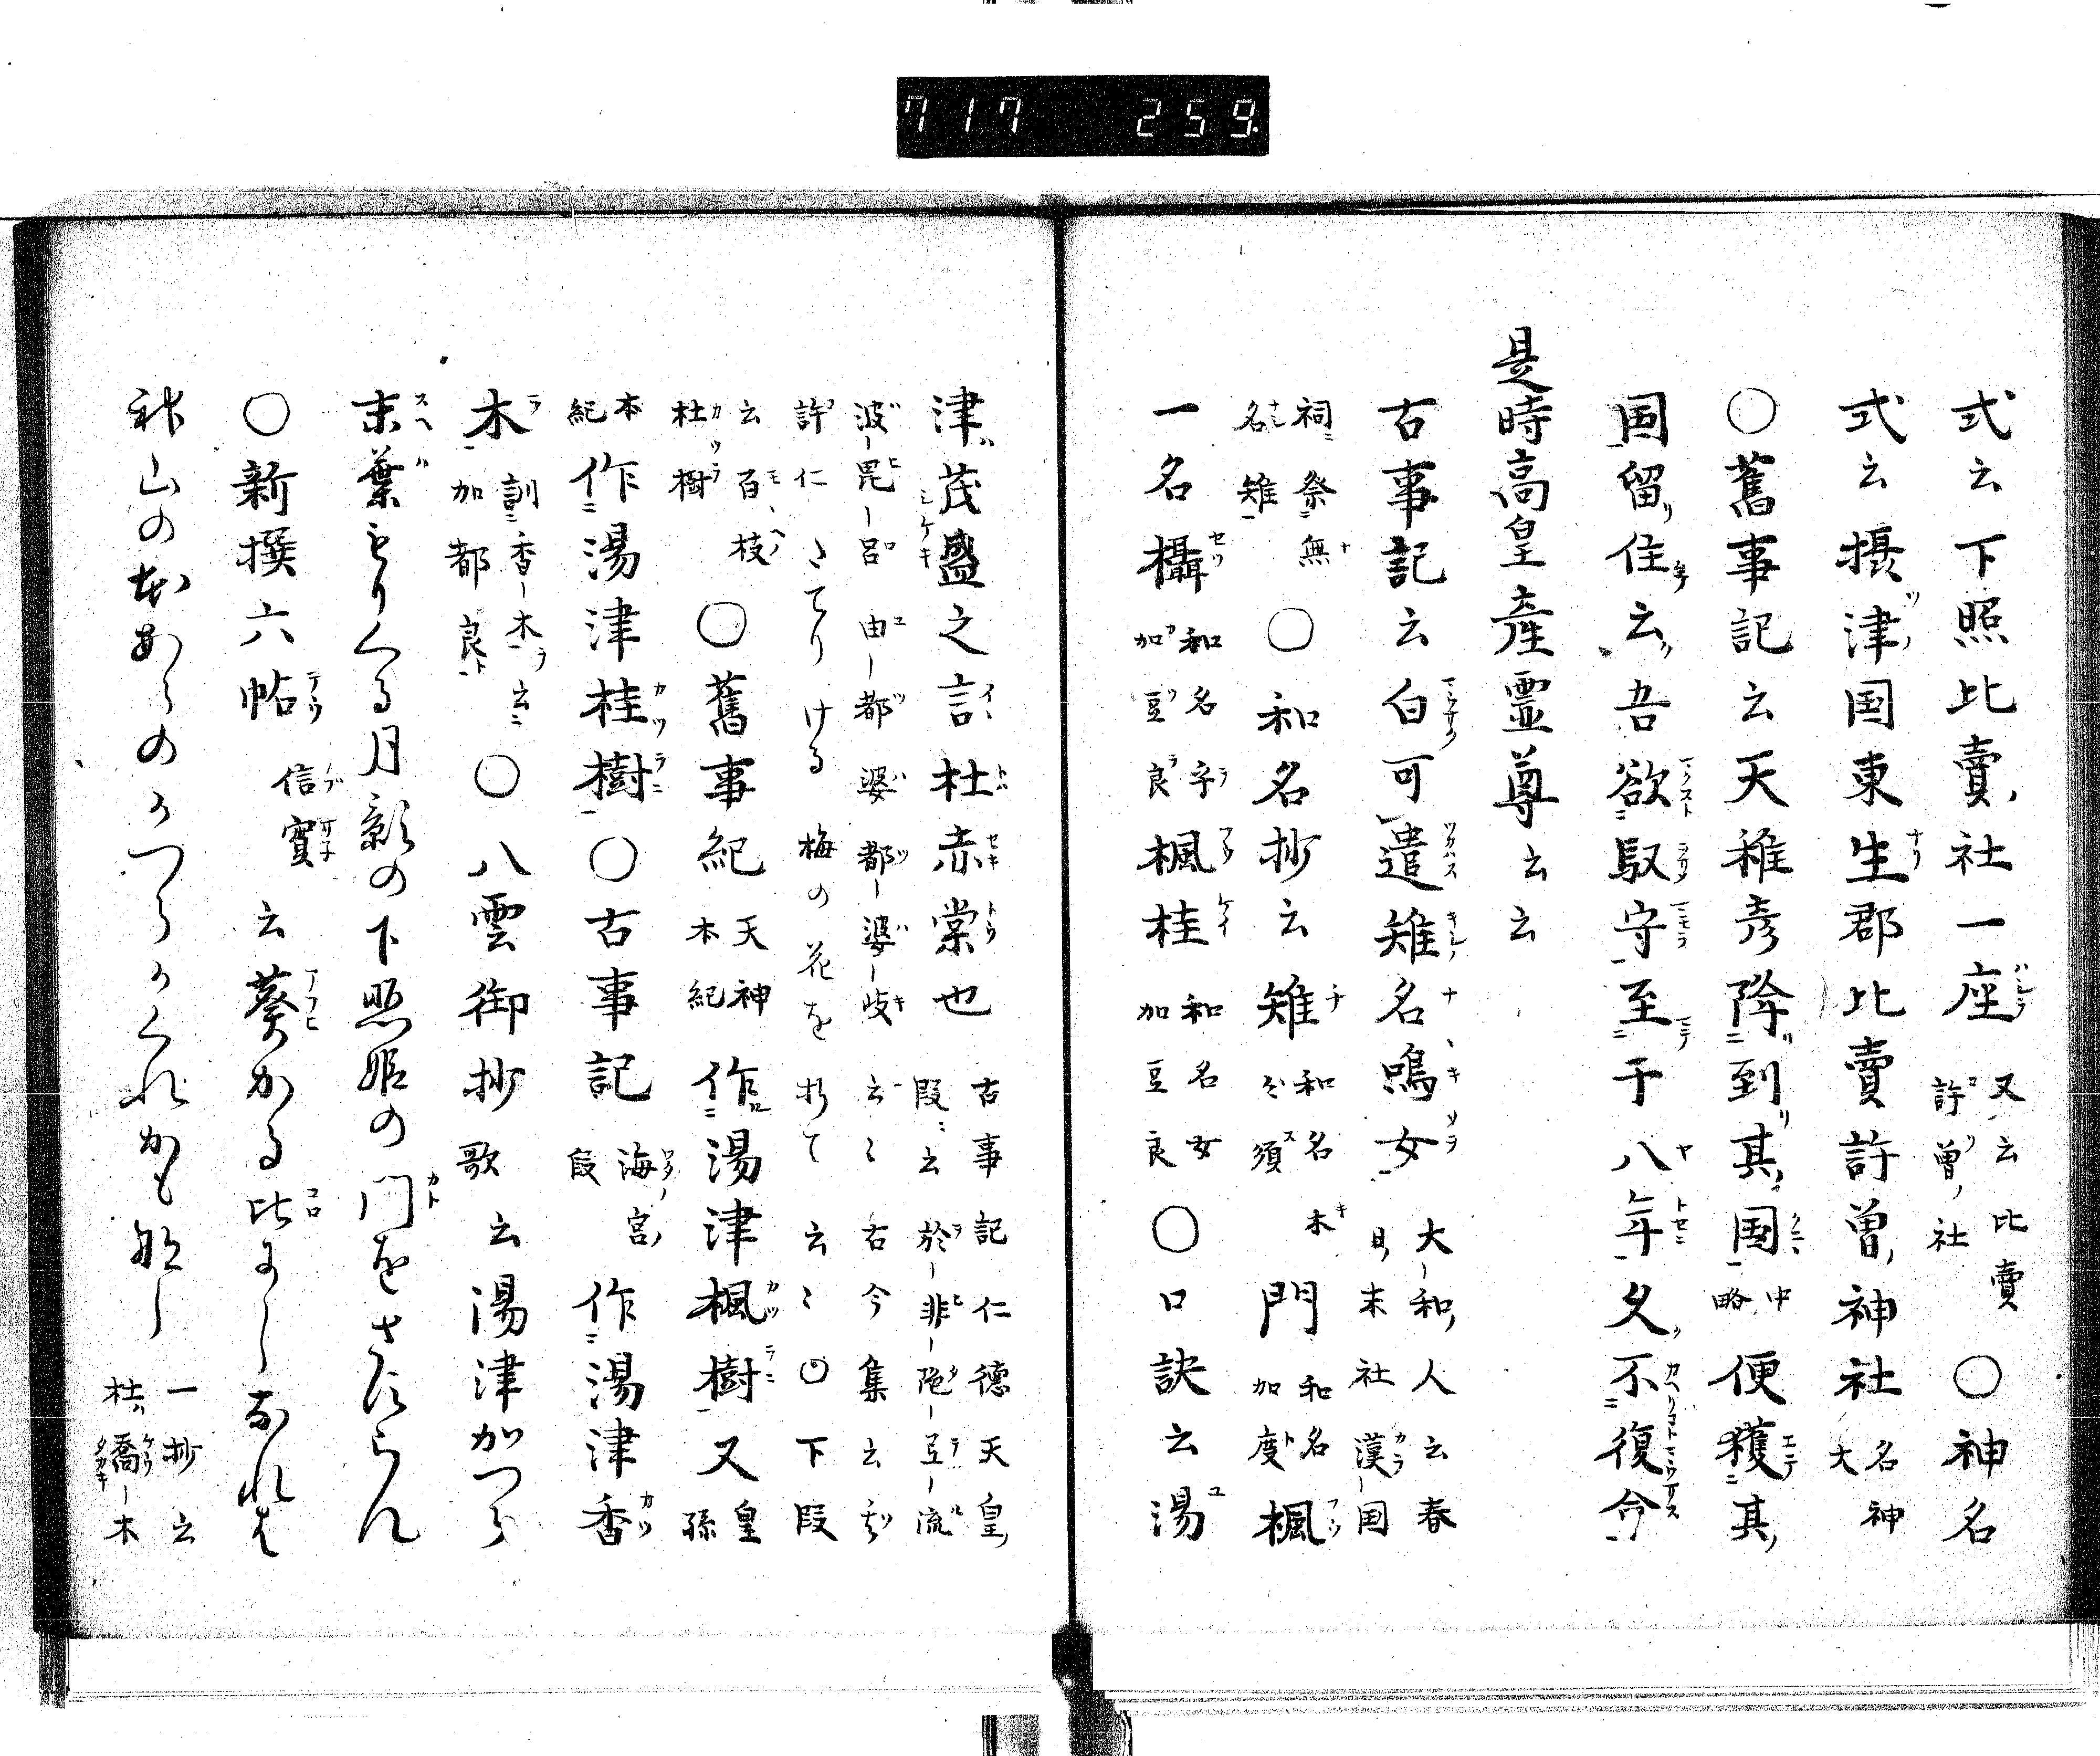 717 259.
式云下照比賣社一座 又云比賣許曽社 ○神名
式云摂津国東生郡比賣許曽神社 名神大
○舊事記云天稚彦降到其国 中略 便獲其
国留住云吾欲馭守至于八年久不復命
是時高皇産霊尊云云
古事記云白可遣雉名鳴女 大和人云春日末社漢国
祠祭無名雉 ○和名抄云雉 和名木 須 門 和名加度 楓
一名欇 和名字加豆良 楓桂 和名女加豆良 ○口訣云湯
津茂盛之言杜赤棠也 古事記仁徳天皇段云於非陁亘流
波毘呂由都婆都婆岐云〻古今集云
許仁 てりける梅の花を折て云〻○下段
云百枝杜樹 ○舊事紀 天神本紀 作湯津楓樹又 皇孫
本紀 作湯津桂樹○古事記 海宮段 作湯津香
木 訓香木云加都良 ○八雲御抄歌云湯津かつら
末葉もりくる月影の下照姫の門をさすらん
○新撰六帖 信實 云葵かる比よしなれは
神山のあらのかつらかくれかも好し 一抄云杜喬木